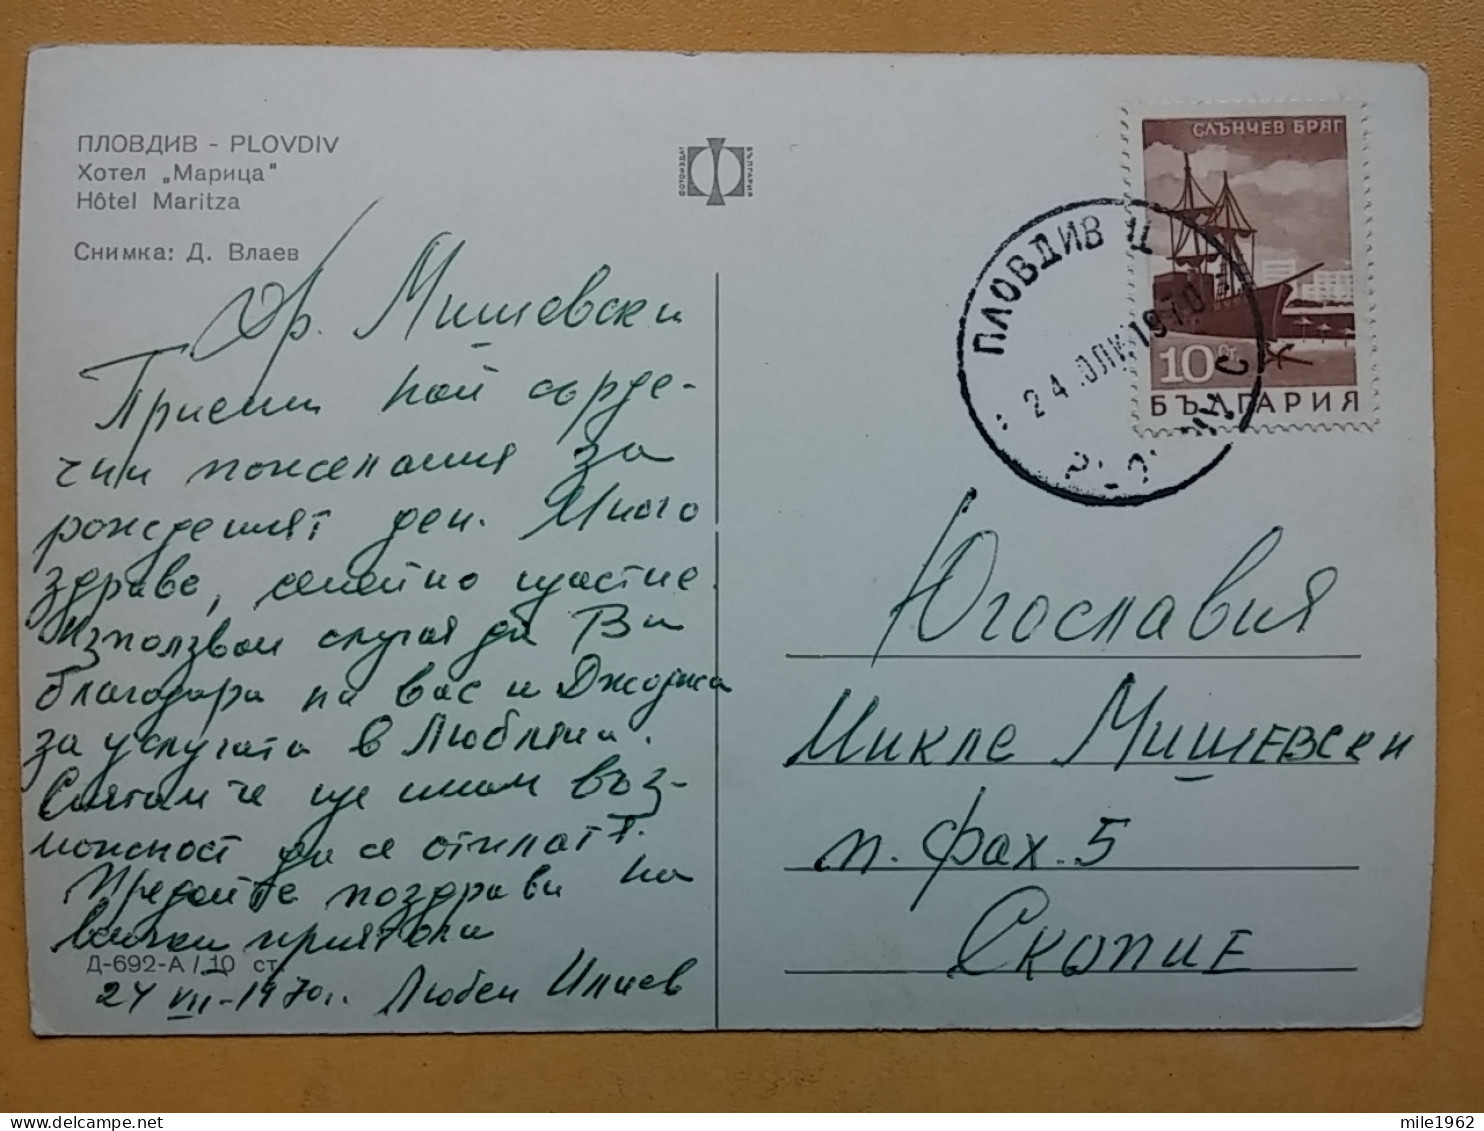 ПЛОВДИВ - PLOVDIV
Хотел „Марица"
Hôtel Maritza
Снимка: Д. Влаев
ФОТОИЗДАТ
БЪЛГАРИЯ
СЛЪНЧЕВ БРЯГ
10 Ст.
БЪЛГАРИЯ
ПЛОВДИВ Ц
24. 1970
Др. Мишевски
Приеми най сърде-
чни пожелания за
рождения ден. Много
здраве, семейно щастие.
Използвам случая да Ви
благодаря на вас и
за услугата в Любляна.
че ще имам въз-
можност да се отплатя.
Предайте поздрави на
всички приятели
Д-692-А / 10 ст.
24 VII-1970г. Любен Илиев
Югославия
Микле Мишевски
п. фах. 5
Скопие
mile1962